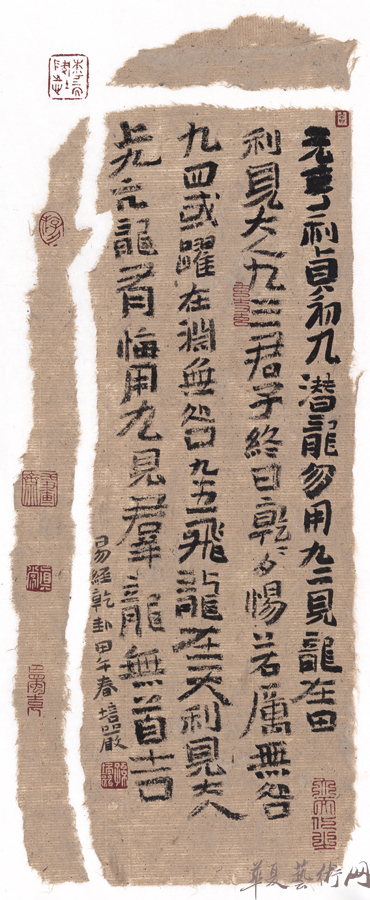 元亨利貞初九潜龍勿用九二見龍在田
利見大人九三君子終日乾〻夕惕若厲無咎
九四或躍在淵無咎九五飛龍在天利見大人
上九亢龍有悔用九見羣龍無首吉
易經乾卦甲午春培嚴
華夏藝術网